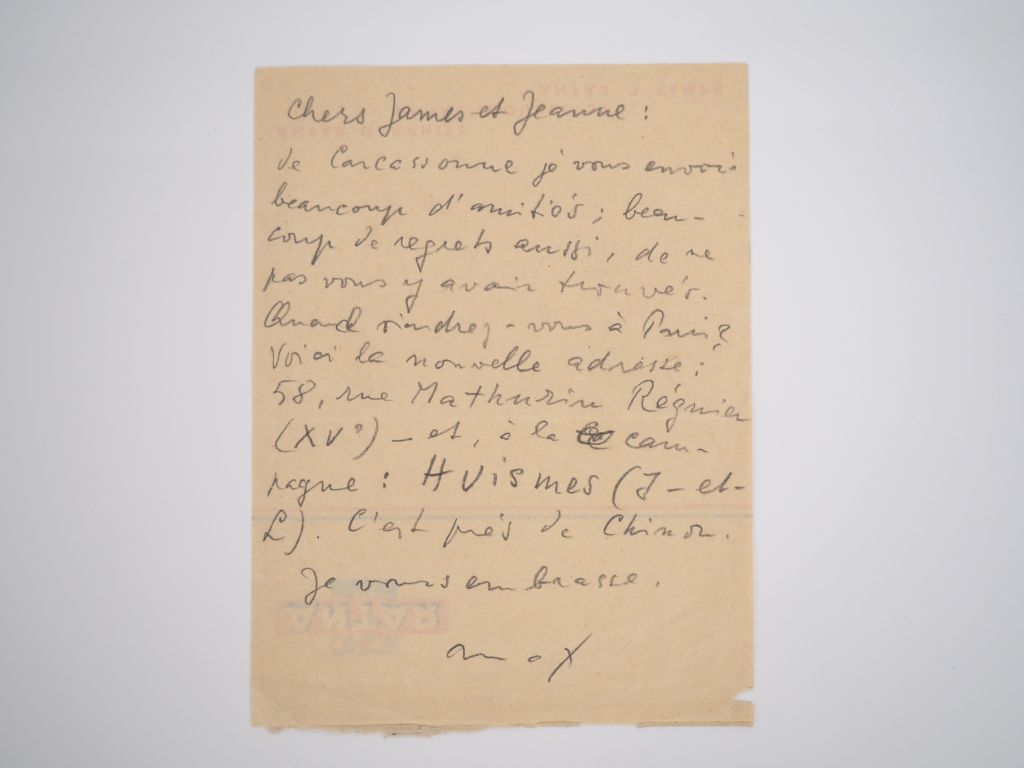 Chers James et Jeanne :
de Carcassonne je vous envoie
beaucoup d'amitiés ; beau-
coup de regrets aussi, de ne
pas vous y avoir trouvés.
Quand viendrez-vous à Paris?
Voici la nouvelle adresse :
58, rue Mathurin Régnier
(XVe) – et, à la cam-
pagne : HUismes (I-et-
L). C'est près de Chinon.
Je vous embrasse.
max